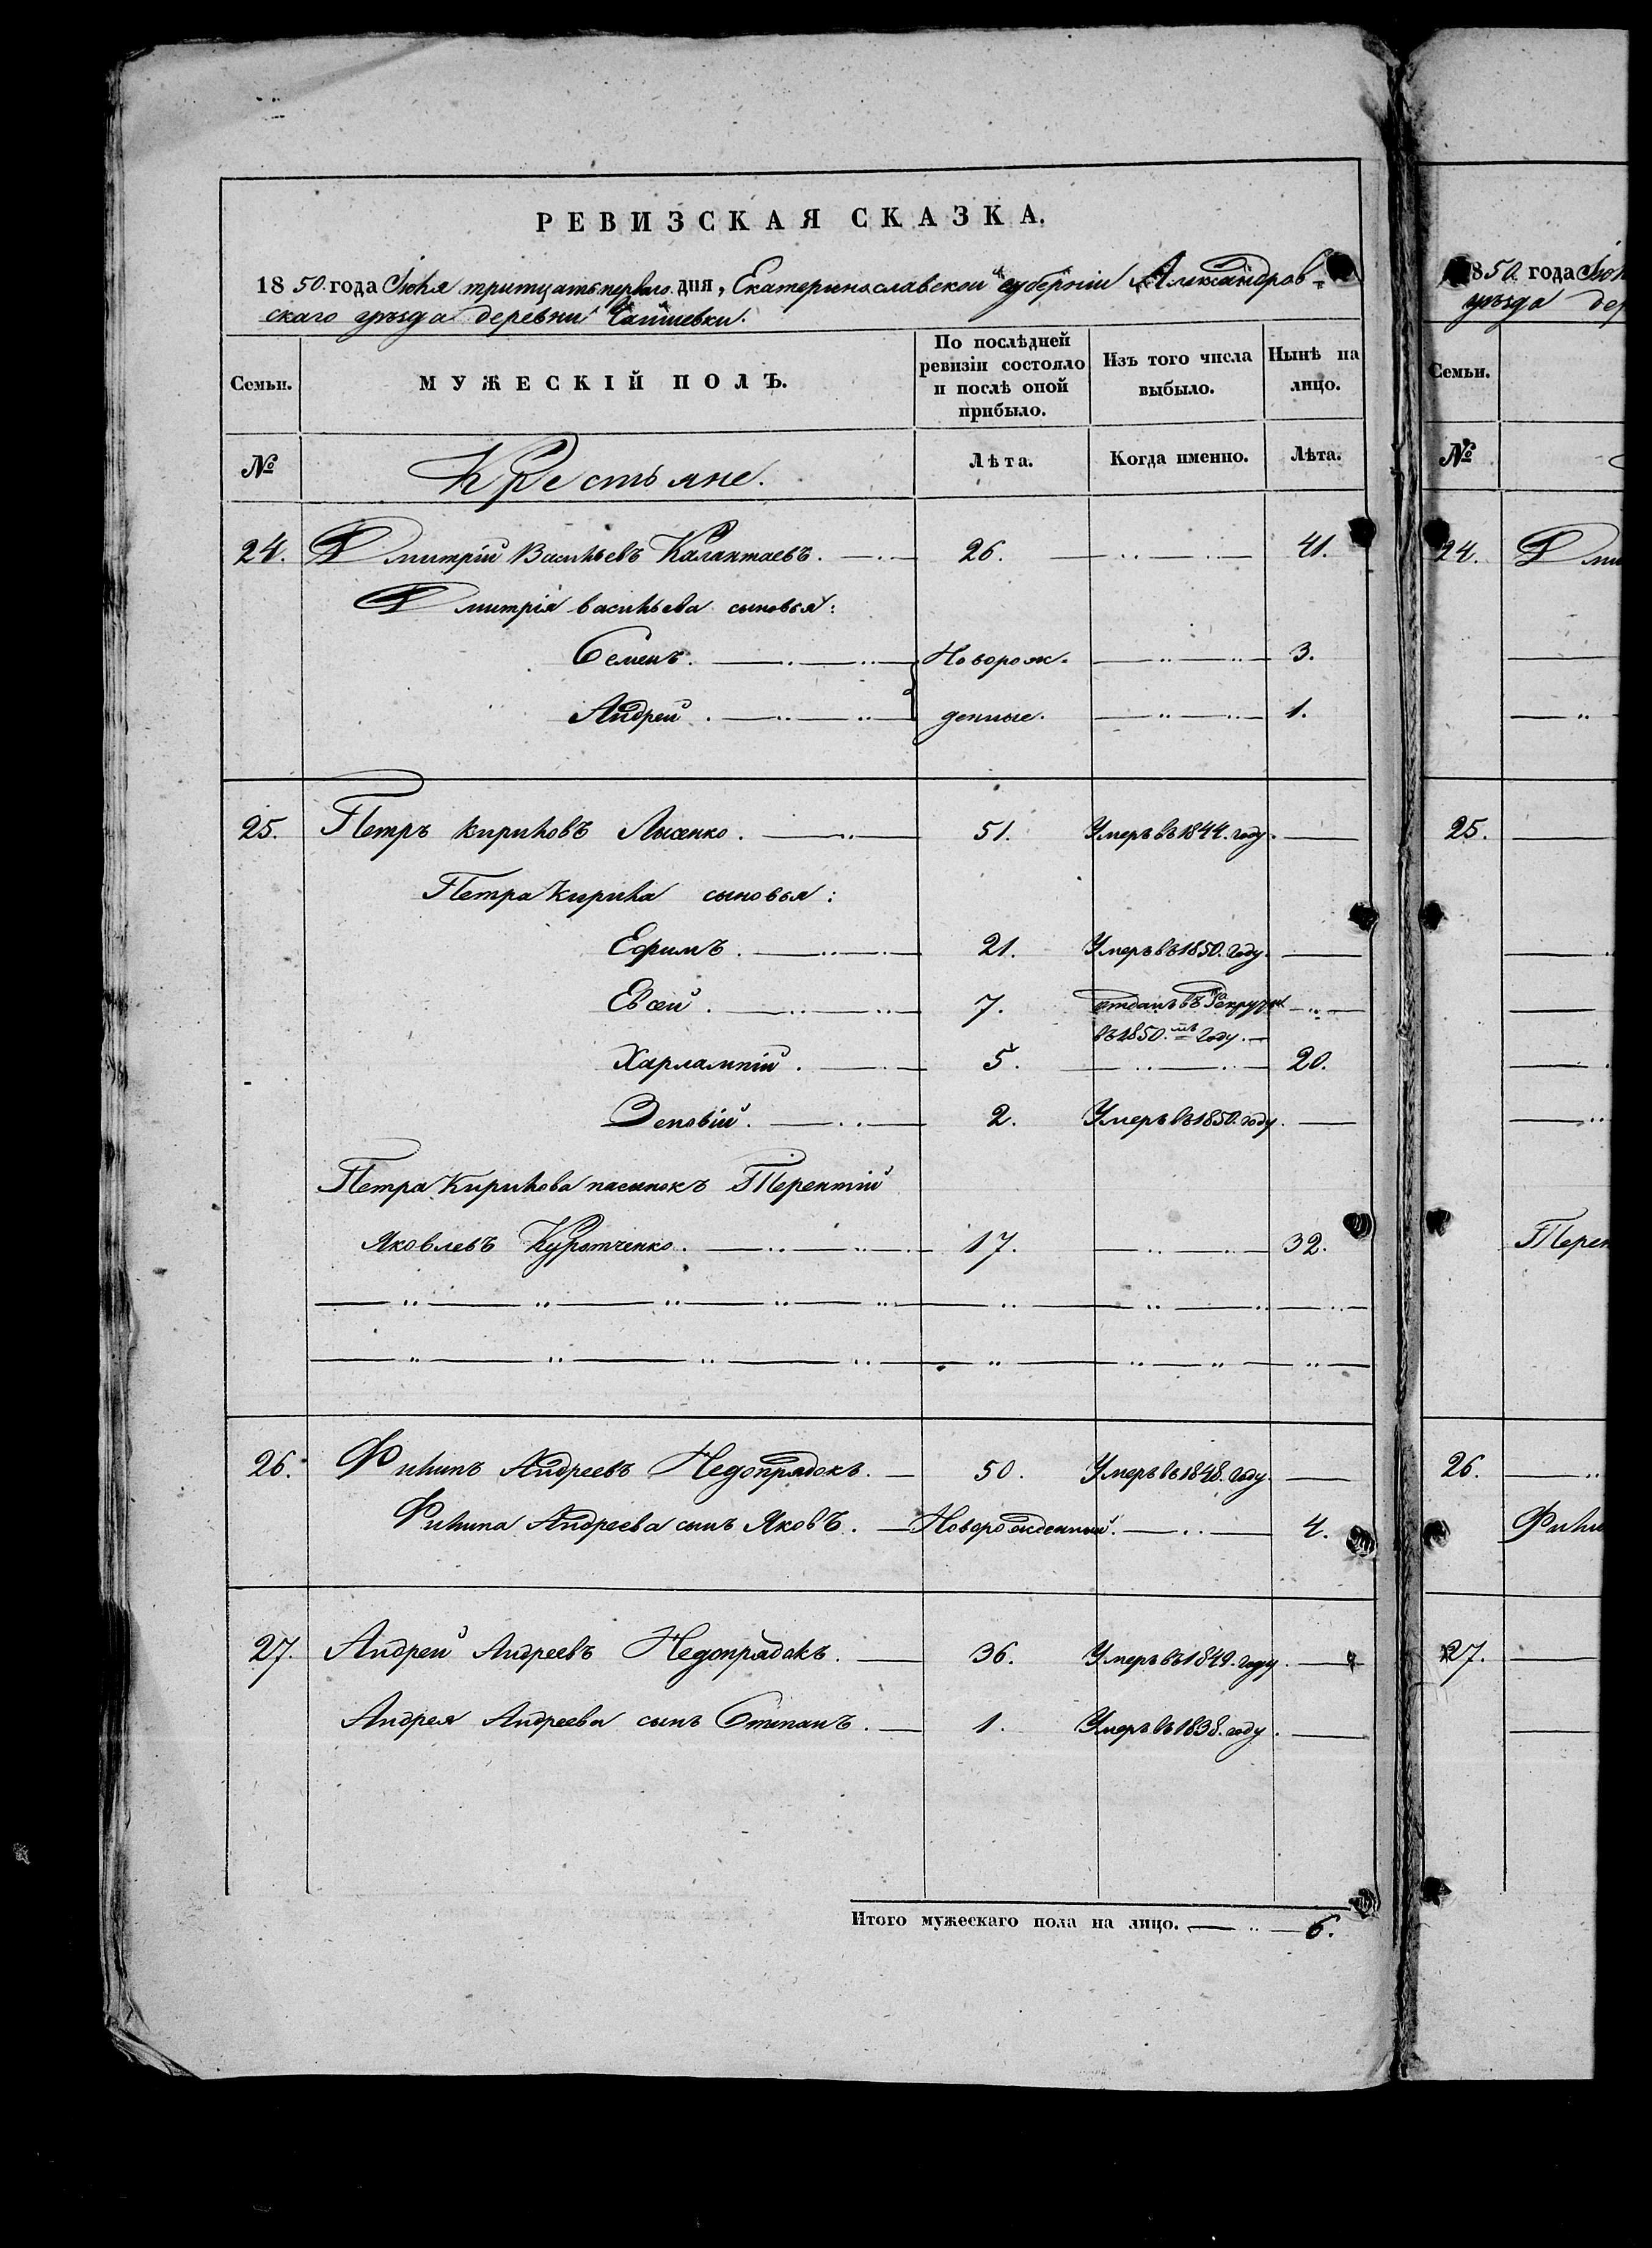 РЕВИЗСКАЯ СКАЗКА.
1850. года Іюля тритцать перваго дня, Екатеринославской губерніи Александров-
скаго уѣзда деревни
Семьи. МУЖЕСКІЙ ПОЛЪ. По послѣдней ревизіи состояло и послѣ оной прибыло. Изъ того числа выбыло. Нынѣ на лицо.
№ Крестьяне. Лѣта. Когда именно. Лѣта.
24. Дмитрій Васильевъ Калантаевъ. 26. 41.
Дмитрія васильева сыновья:
Семенъ. Новорож- 3.
Андрей. денные. 1.
25. Петръ кириловъ Лысенко. 51. Умеръ въ 1844. году.
Петра Кирила сыновья:
Ефимъ. 21. Умеръ въ 1850. году.
Евсей. 7. отданъ въ Рекруты
въ 1850.мъ году.
Харлампій. 5. 20.
Зеновій. 2. Умеръ въ 1850. году.
Петра Кирилова пасынокъ Терентій
Яковлевъ 17. 32.
26. Филипъ Андреевъ Недопрядокъ. 50. Умеръ въ 1848. году.
Филипа Андреева сынъ Яковъ. Новорожденный. 4.
27. Андрей Андреевъ Недопрядокъ. 36. Умеръ въ 1849. году.
Андрея Андреева сынъ Степанъ. 1. Умеръ въ 1838. году.
Итого мужескаго пола на лицо. 6.
1850. года Іюл
уѣзда дер
Семьи.
№
24. Дми
25.
Терен
26.
Фили
27.